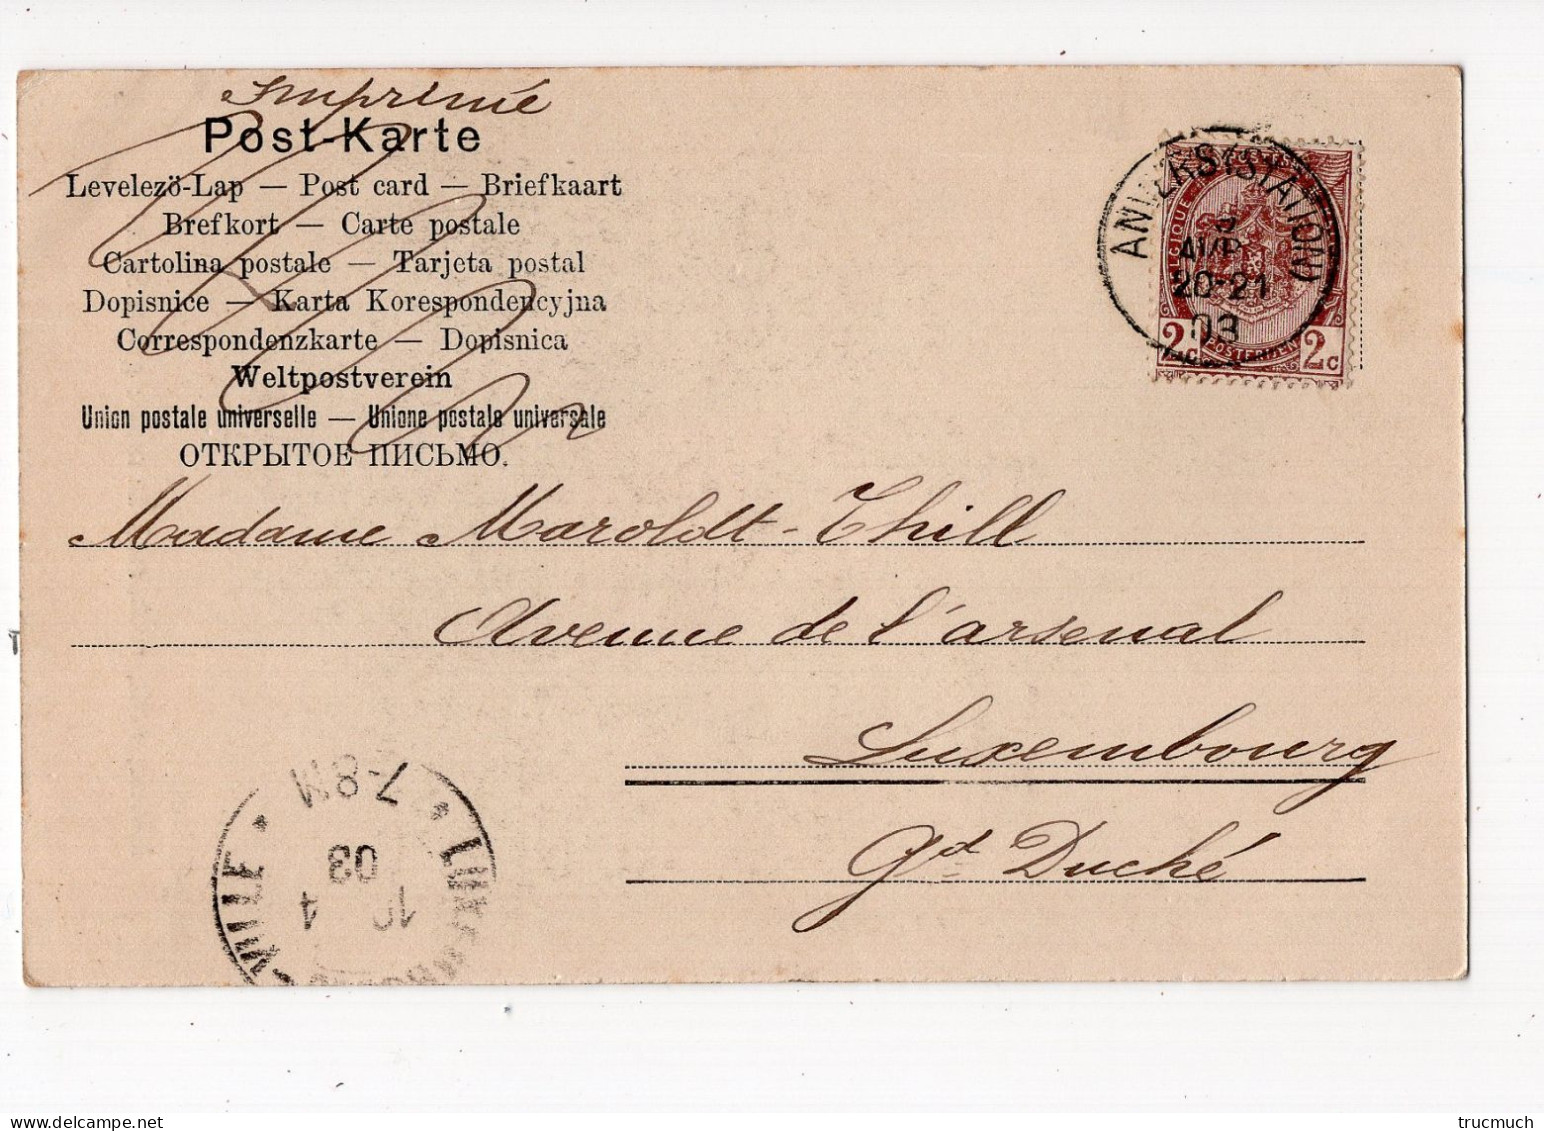 Imprimé
Post-Karte
Levelezö-Lap — Post card — Briefkaart
Brefkort — Carte postale
Cartolina postale — Tarjeta postal
Dopisnice — Karta Korespondencyjna
Correspondenzkarte — Dopisnica
Weltpostverein
Union postale universelle — Unione postale universale
ОТКРЫТОЕ ПИСЬМО.
ANVERS (STATION)
AVR
20-21
03
2c 2c
Madame Maroldt-Thill
Avenue de l'arsenal
Luxembourg
Gd Duché
* VILLE *
7-8M
03
10 4
trucmuch